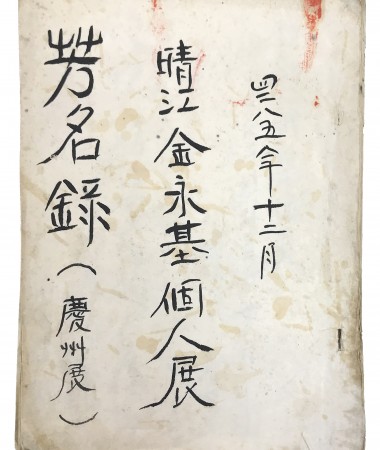 四二八五年十二月
晴江金永基個人展
芳名錄(慶州展)